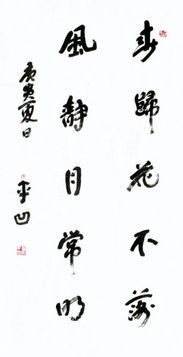 春歸花不落
風静月常明
庚寅夏日
平凹